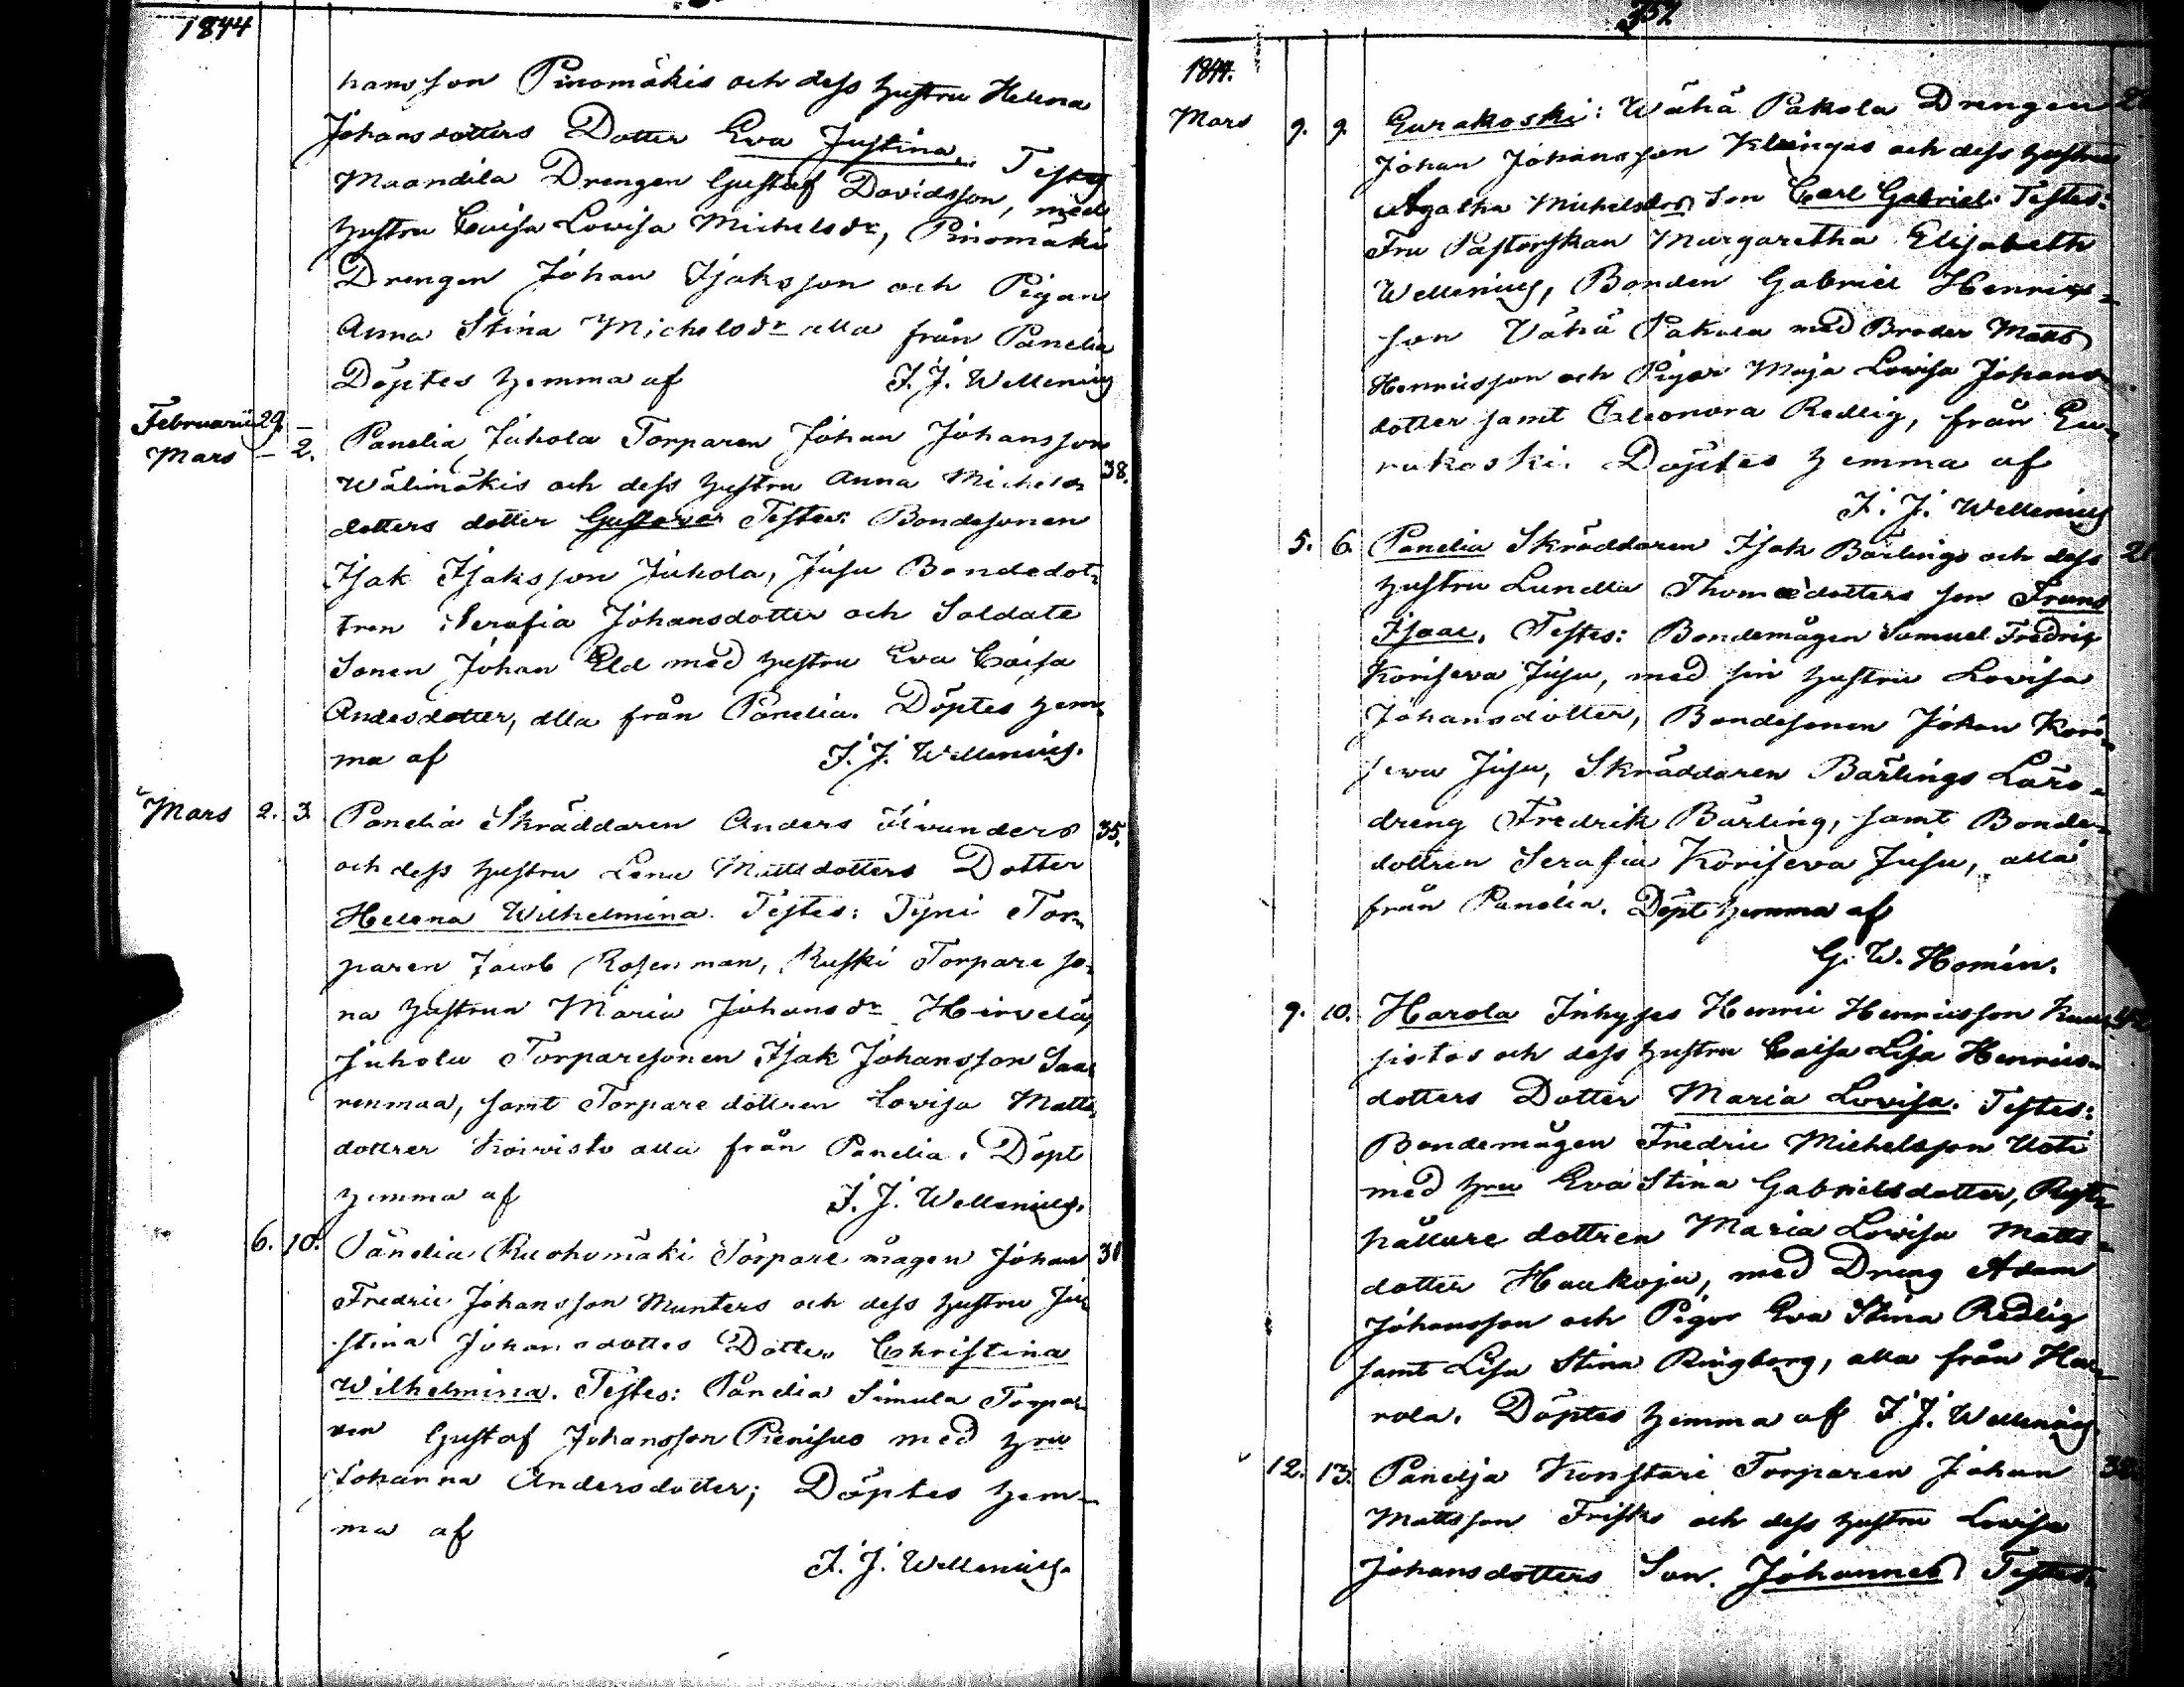 1844
hansson Pinomäkis och dess hustru Helena
Johansdotters Dotter Eva Justina. Testes
Maandila Drengen Gustaf Davidsson, med
hustru Caisa Lovisa Michelsdr, Pinomäki
Drengen Johan Isaksson och Pigan
Anna Stina Michelsdr alla från Panelia
Döptes hemma af J. J. Wellenius
Februarii 29. –
Mars – 2. Panelia Juhola Torparen Johan Johansson
Wälimäkis och dess hustru Anna Michels 38.
dotters dotter Gustava Testes: Bondesonen
Isak Isaksson Juhola, Jusu Bondedot-
tren Serafia Johansdotter och Soldate
Sonen Johan Eld med hustru Eva Caisa
Andesdotter, alla från Panelia. Döptes hem-
ma af J. J. Wellenius.
Mars 2. 3. Panelia Skräddaren Anders 35.
och dess hustru Lena Mattsdotters Dotter
Helena Wilhelmina. Testes: Tyni Tor-
paren Jacob Rosenman, Ruski Torpare so-
na hustrun Maria Johansdr Heirvelä,
Juhola Torparesonen Isak Johansson Saa-
renmaa, samt Torpare dottren Lovisa Matts
dotter Koivisto alla från Panelia. Döpt
hemma af J. J. Wellenius.
6. 10. Panelia Ruohomäki Torpare mågen Johan 31
Fredric Johansson Munters och dess hustru Ju-
stina Johansdotters Dotter Christina
Wilhelmina. Testes: Panelia Simula Torpa-
ren Gustaf Johansson Pienisuo med hru
Johanna Andersdotter; Döptes hem-
ma af
J. J. Wellenius.
357
1844.
Mars 9. 9. Eurakoski: Wähä Pakola Drengen
Johan Johansson Klingas och dess hustru
Agatha Michelsdrs Son Carl Gabriel. Testes:
Fru Pastorskan Margaretha Elisabeth
Wellenius, Bonden Gabriel Henrics-
son Vähä Pakola med Broder Matts
Henricsson och Pigor Maja Lovisa Johans-
dotter samt Eleonora Redlig, från Eu-
rakoski. Döptes hemma af
J. J. Wellenius
5. 6. Panelia Skräddaren Isak Bärlings och dess
hustru Lunella Thomædotters son Frans
Isaac. Testes: Bondemågen Samuel Fredric
Koriseva Jusu, med sin hustru Lovisa
Johansdotter, Bondesonen Johan Kori-
seva Jusu, Skräddaren Bärlings Läro-
dreng Fredrik Bärling, samt Bonde-
dottren Serafia Koriseva Jusu, alla
från Panelia. Döpt hemma af
G. W. Homén.
9. 10. Harola Inhyses Henric Henricsson Kuu-
sistos och dess hustru Caisa Lisa Henrics-
dotters Dotter Maria Lovisa. Testes:
Bondemågen Fredric Michelsson Uoti
med hru Eva Stina Gabrielsdotter, Ryst-
hållare dottren Maria Lovisa Matts-
dotter Haukoja, med Dreng Adam
Johansson och Pigor Eva Stina Redlig
samt Lisa Stina Ringberg, alla från Ha-
rola. Döptes hemma af J. J. Wellenius
12. 13. Panelja Konstari Torparen Johan
Mattsson Frisks och dess hustru Lovisa
Johansdotters Son. Johannes Testes.